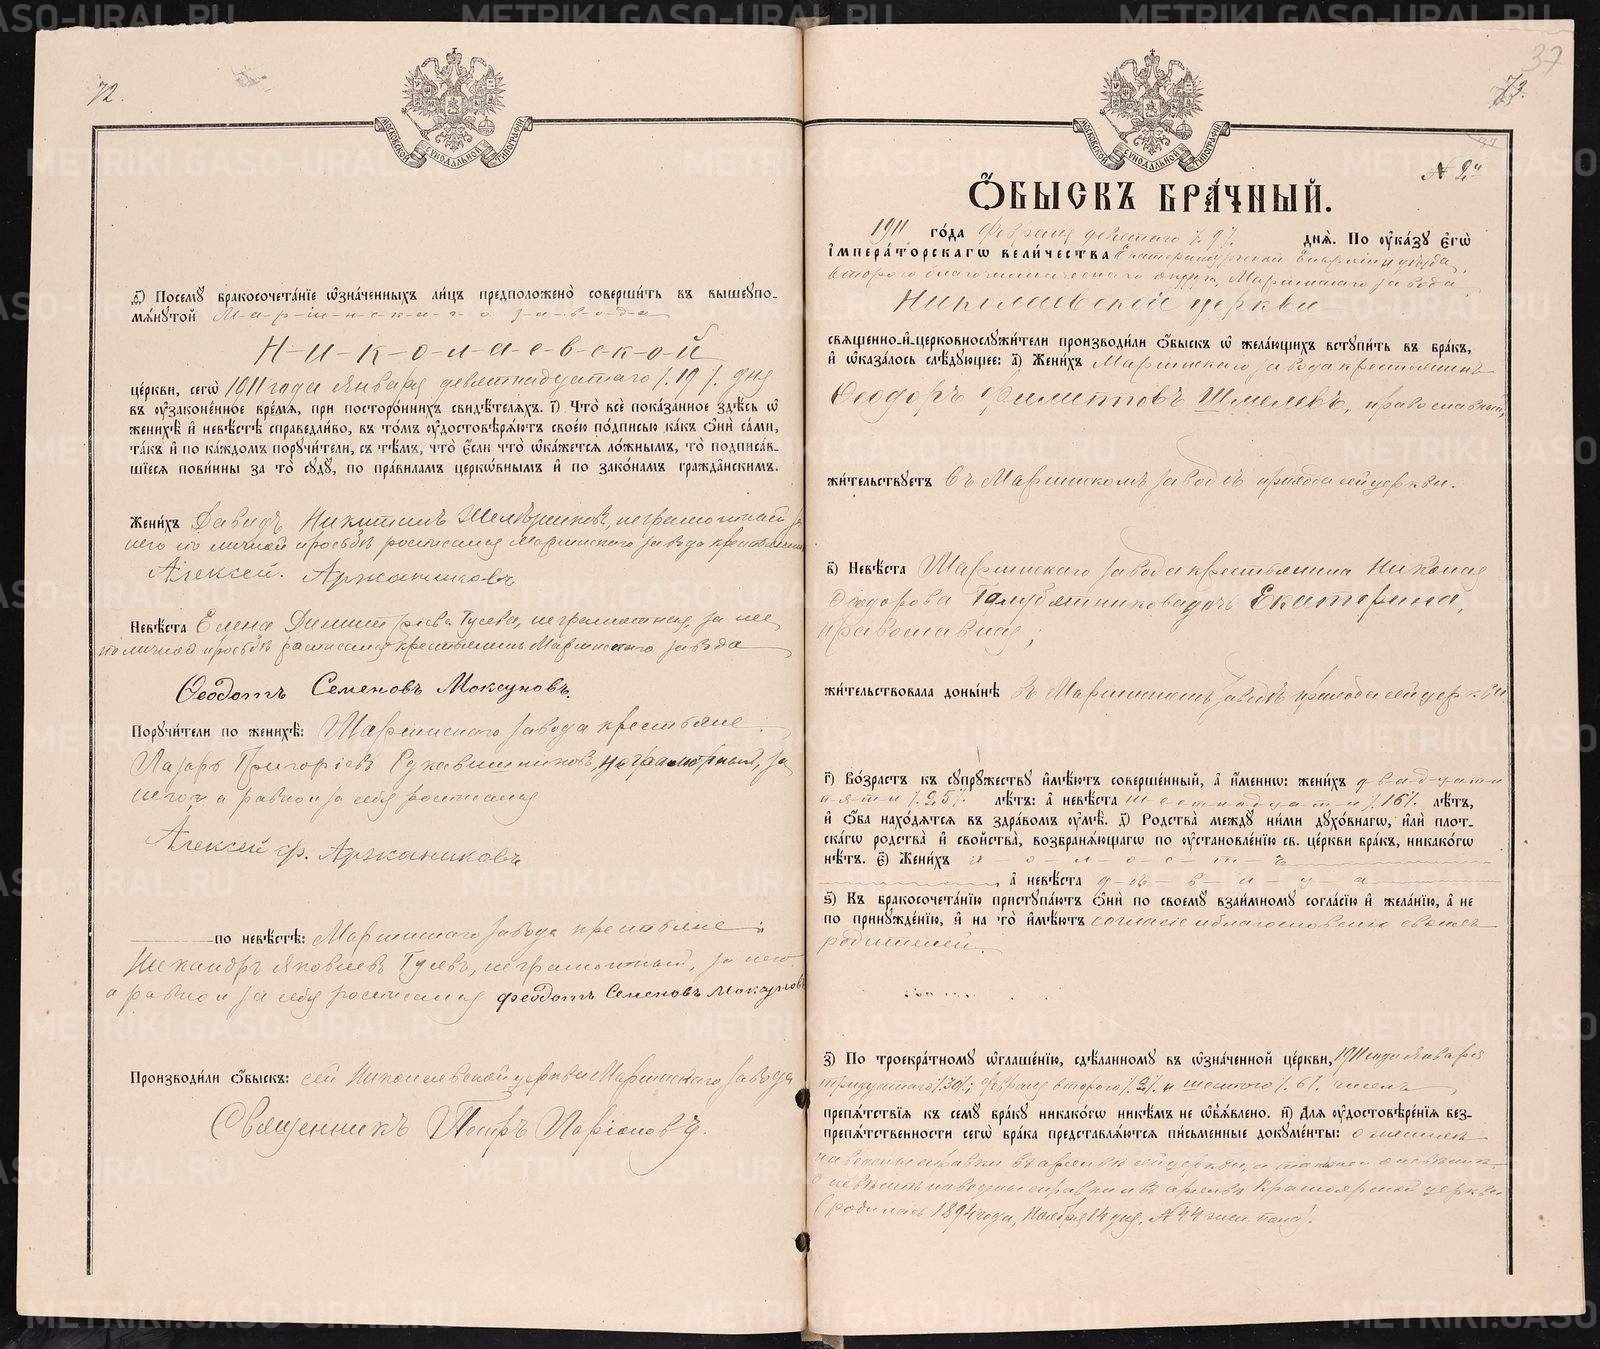 72.
МОСКОВСКОЙ СѴНОДАЛЬНОЙ ТИПОГРАФІИ
д҃) Посемꙋ бракосочетанїе ѡзначенныхъ лицъ предположено совершить въ вышеупо-
мѧнутой М-а-р-і-и-н-с-к-а-г-о з-а-в-о-д-а
Н-и-к-о-л-а-е-в-с-к-о-й
церкви, сегѡ 1911 года Января девятнадцатаго /.19/. дня
въ ᲂузаконенное время, при постороннихъ свидѣтеляхъ. і҃) Что все показанное здѣсь ѡ
женихѣ и невѣстѣ справедливо, въ томъ ᲂудостовѣряютъ своею подписью какъ ѻни сами,
такъ и по каждомъ поручители, съ тѣмъ, что если что ѡкажется ложнымъ, то подписав-
шіеся повинны за то судꙋ, по правиламъ церкѡвнымъ и по законамъ гражданскимъ.
Женихъ Давидъ Никитинъ Шелѣшниковъ, неграмотный, за
него по личной просьбѣ росписался Маріинскаго завода крестьянинъ
Алексей. Аржанниковъ
Невѣста Елена Димитріева Гусева, неграмотная, за нее
по личной просьбѣ расписался крестьянинъ Маріинскаго завода
Ѳеодотъ Семеновъ Моксуновъ.
Поручители по женихѣ: Маріинскаго завода крестьяне:
Лазарь Григорьевъ Рукавишниковъ, неграмотный, за
него, а равно и за себя росписался
Алексей Аржанниковъ
по невѣстѣ: Маріинскаго завода крестьяне:
Никандръ Яковлевъ Гусевъ, неграмотный, за него
а равно и за себя росписался Ѳеодотъ Семеновъ Моксуновъ
Производили ѻбыскъ: сей Николаевской церкви Маріинскаго завода
Священникъ Петръ Ларіоновъ.
37
73.
МОСКОВСКОЙ СѴНОДАЛЬНОЙ ТИПОГРАФІИ
№ 24
ѺБЫСКЪ БРАЧНЫЙ.
1911 года Февраля девятаго /.9/. дня. По ᲂуказꙋ Егѡ
Імператорскагѡ величества Екатеринбургской Епархіи и уѣзда,
второго благочинническаго округа, Маріинскаго завода
Николаевской церкви
священно-и-церковнослужители производили ѻбыскъ ѡ желающихъ вступить въ бракъ,
и ѡказалось слѣдующее: а҃) Женихъ Маріинскаго завода крестьянинъ
Ѳеодоръ Филипповъ Шмелевъ, православный,
жительствуетъ въ Маріинскомъ заводѣ прихода сей церкви.
в҃) Невѣста Маріинскаго завода крестьянина Николая
Ѳеодорова Голубятникова дочь Екатерина,
православная;
жительствовала донынѣ въ Маріинскомъ заводѣ прихода сей церкви.
г҃) Возрастъ къ супружествꙋ имѣютъ совершенный, а именнѡ: женихъ д-в-а-д-ц-а-т-и
п-я-т-и /.25/. лѣтъ: а невѣста ш-е-с-т-н-а-д-ц-а-т-и /.16/. лѣтъ,
и ѻба находятся въ здравомъ ᲂумѣ. д҃) Родства между ними духовнагѡ, или плот-
скагѡ родства и свойства, возбраняющагѡ по ᲂустановленію св. церкви бракъ, никакогѡ
нѣтъ. є҃) Женихъ х-о-л-о-с-т-ъ
, а невѣста д-ѣ-в-и-ц-а
ѕ҃) Къ бракосочетанію приступаютъ ѻни по своемꙋ взаимномꙋ согласію и желанію, а не
по принужденію, и на то имѣютъ согласіе и благословеніе своихъ
родителей.
з҃) По троекратномꙋ ѡглашенію, сдѣланномꙋ въ ѡзначенной церкви, 1911 года Января
тридцатаго /.30/.; Февраля второго /.2/. и шестого /.6/. чиселъ,
препятствія къ семꙋ бракꙋ никакогѡ никѣмъ не ѡбъявлено. и҃) Для ᲂудостовѣренія без-
препятственности сегѡ брака представляются письменные документы: о женихѣ
наведены справки въ архивѣ сей церкви,
о невѣстѣ наведены справки въ архивѣ Красноярской церкви
(родилась 1894 года, Ноября 14 дня, № 44